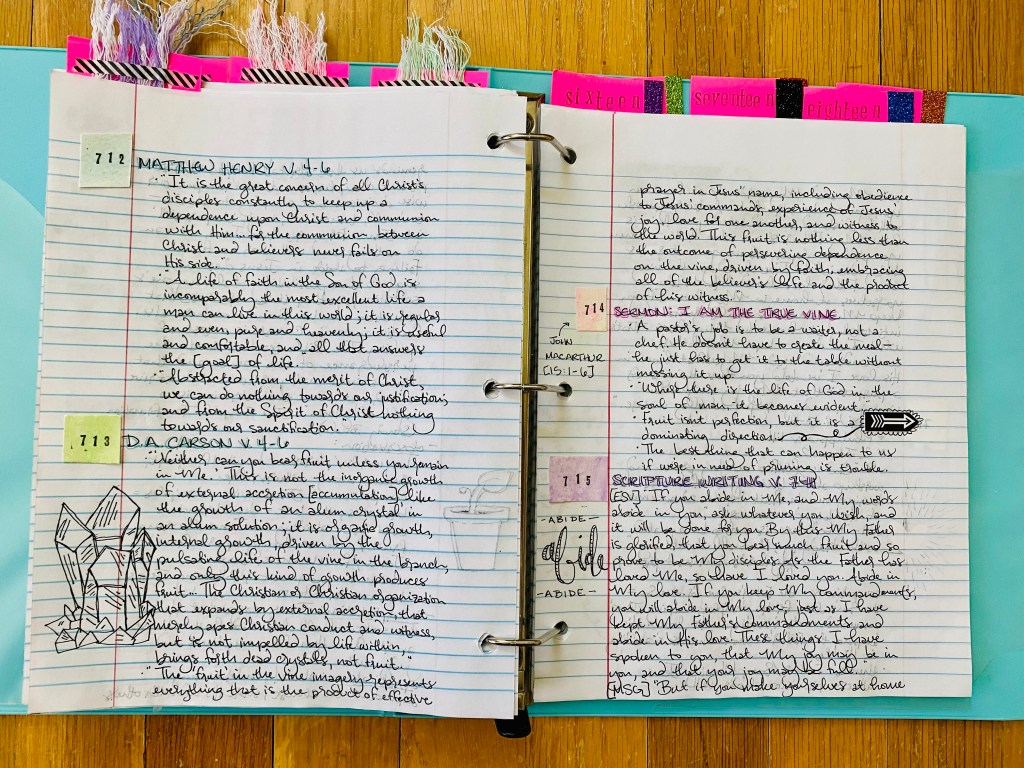 sixteen
seventeen
eighteen
712
MATTHEW HENRY V. 4-6
· "It is the great concern of all Christ's
disciples constantly to keep up a
dependence upon Christ and communion
with Him... for the communion between
Christ and believers never fails on
His side."
· "A life of faith in the Son of God is
incomparably the most excellent life a
man can live in this world; it is regular
and even, pure and heavenly; it is useful
and comfortable, and all that answers
the [goal] of life.
· "Abstracted from the merit of Christ,
we can do nothing towards our justification;
and from the Spirit of Christ nothing
towards our sanctification."
713
D.A. CARSON V. 4-6
· "'Neither can you bear fruit unless you remain
in Me.' This is not the inorganic growth
of external accretion [accumulation] like
the growth of an alum crystal in
an alum solution; it is organic growth,
internal growth, driven by the
pulsating life of the vine in the branch,
and only this kind of growth produces
fruit... The Christian or Christian organization
that expands by external accretion, that
merely apes Christian conduct and witness,
but is not impelled by life within,
brings forth dead crystals, not fruit."
· "The 'fruit' in the vine imagery represents
everything that is the product of effective
prayer in Jesus' name, including obedience
to Jesus' commands, experience of Jesus'
joy, love for one another, and witness to
the world. This fruit is nothing less than
the outcome of persevering dependence
on the vine, driven by faith, embracing
all of the believer's life and the product
of his witness."
714
SERMON: I AM THE TRUE VINE
JOHN
MACARTHUR
[15:1-6]
· A pastor's job is to be a waiter, not a
chef. He doesn't have to create the meal—
he just has to get it to the table without
messing it up.
· "Where there is the life of God in the
soul of man, it becomes evident."
· Fruit isn't perfection, but it is a
dominating direction.
· The best thing that can happen to us
if we're in need of pruning is trouble.
715
SCRIPTURE WRITING V. 7-11
- ABIDE -
abide
- ABIDE -
[ESV] If you abide in Me, and My words
abide in you, ask whatever you wish, and
it will be done for you. By this My Father
is glorified, that you bear much fruit and so
prove to be My disciples. As the Father has
loved Me, so have I loved you. Abide in
My love. If you keep My commandments,
you will abide in My love, just as I have
kept My Father's commandments and
abide in His love. These things I have
spoken to you, that My joy may be in
you, and that your joy may be full."
[MSG] "But if you make yourselves at home